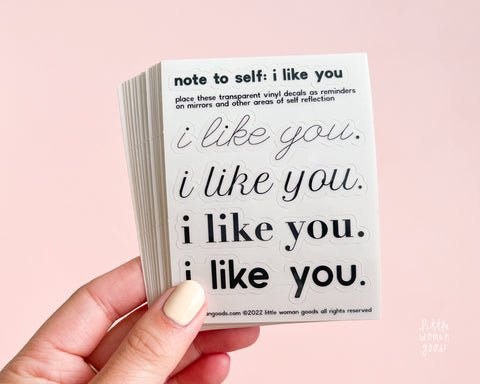 note to self: i like you
place these transparent vinyl decals as reminders
on mirrors and other areas of self reflection
i like you.
i like you.
i like you.
i like you.
goods.com ©2022 little woman goods all rights reserved
little
woman
goods